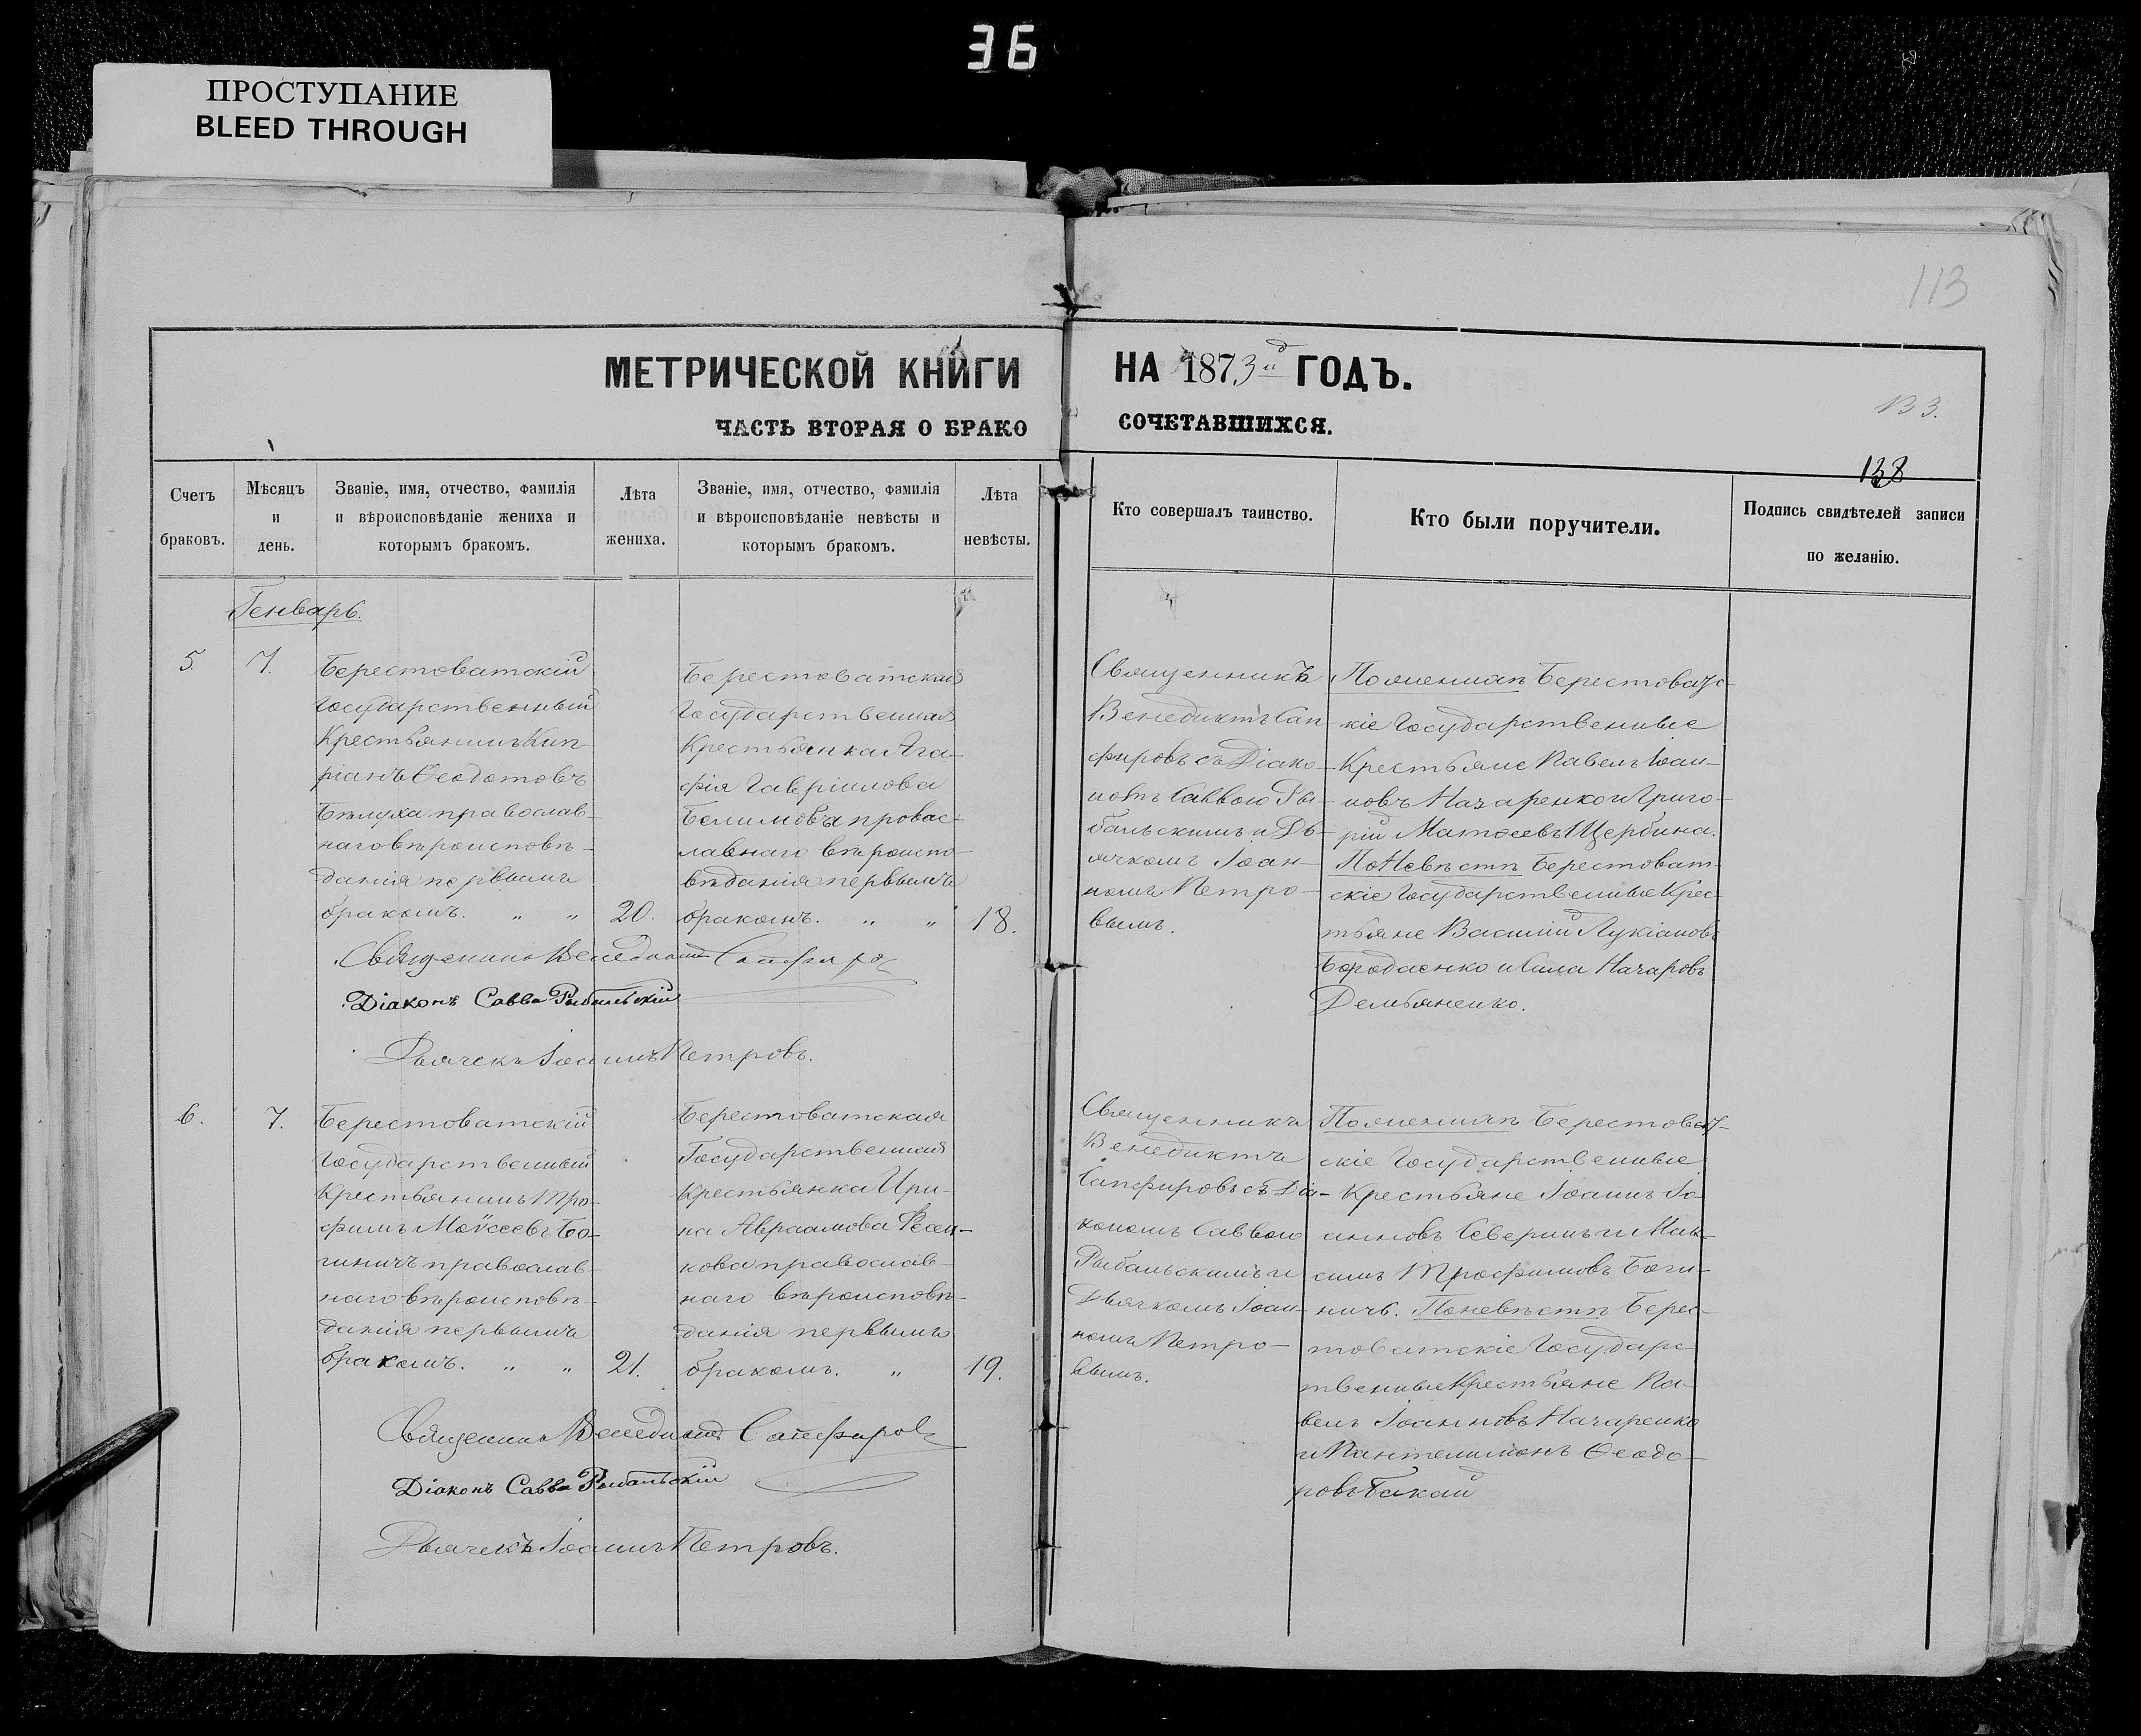 36
ПРОСТУПАНИЕ
BLEED THROUGH
113
МЕТРИЧЕСКОЙ КНИГИ НА 1873й ГОДЪ.
ЧАСТЬ ВТОРАЯ О БРАКО СОЧЕТАВШИХСЯ.
138
Счетъ
браковъ.
Мѣсяцъ
и
день.
Званіе, имя, отчество, фамилія
и вѣроисповѣданіе жениха и
которымъ бракомъ.
Лѣта
жениха.
Званіе, имя, отчество, фамилія
и вѣроисповѣданіе невѣсты и
которымъ бракомъ.
Лѣта
невѣсты.
Кто совершалъ таинство.
Кто были поручители.
Подпись свидѣтелей записи
по желанію.
Генварь.
5.
7.
Берестоватскій
Государственный
Крестьянинъ Кип-
ріанъ Ѳеодотовъ
Бѣлуха православ-
наго вѣроисповѣ-
данія первымъ
бракомъ. „ „
20.
Берестоватская
Государственная
Крестьянка Ага-
фія Гавріилова
провас-
лавнаго вѣроиспо-
вѣданія первымъ
бракомъ. „ „
18.
Священникъ
Венедиктъ Сап-
фировъ съ Діако-
номъ Саввою Ры-
бальскимъ и Дь-
ячкомъ Іоан-
номъ Петро-
вымъ.
По женихѣ Берестоват-
скіе Государственные
Крестьяне Павелъ Іоан-
новъ Назаренко и Григо-
рій Матѳеевъ Щербина.
По Невѣстѣ Берестоват-
скіе Государственные Крес-
тьяне Василій Лукіановъ
Бородаенко и Сила Назаровъ
Демьяненко.
Священникъ Венедиктъ Сапфировъ
Діаконъ Савва Рыбальскій
Дьячекъ Іоаннъ Петровъ.
6.
7.
Берестоватскій
Государственный
Крестьянинъ Тро-
фимъ Моѵсеевъ Бо-
гиничъ православ-
наго вѣроисповѣ-
данія первымъ
бракомъ. „ „
21.
Берестоватская
Государственная
Крестьянка Ири-
на Авраамова
православ-
наго вѣроисповѣ-
данія первымъ
бракомъ. „
19.
Священникъ
Венедиктъ
Сапфировъ съ Діа-
кономъ Саввою
Рыбальскимъ и
Дьячкомъ Іоан-
номъ Петро-
вымъ.
По женихѣ Берестоват-
скіе Государственные
Крестьяне Іоаннъ Іо-
анновъ Северинъ и Мак-
симъ Трофимовъ Боги-
ничъ. По невѣстѣ Берес-
товатскіе Государс-
твенные Крестьяне Па-
велъ Іоанновъ Назаренко
и Пантелимонъ Ѳеодо-
ровъ Бакай
Священникъ Венедиктъ Сапфировъ
Діаконъ Савва Рыбальскій
Дьячекъ Іоаннъ Петровъ.